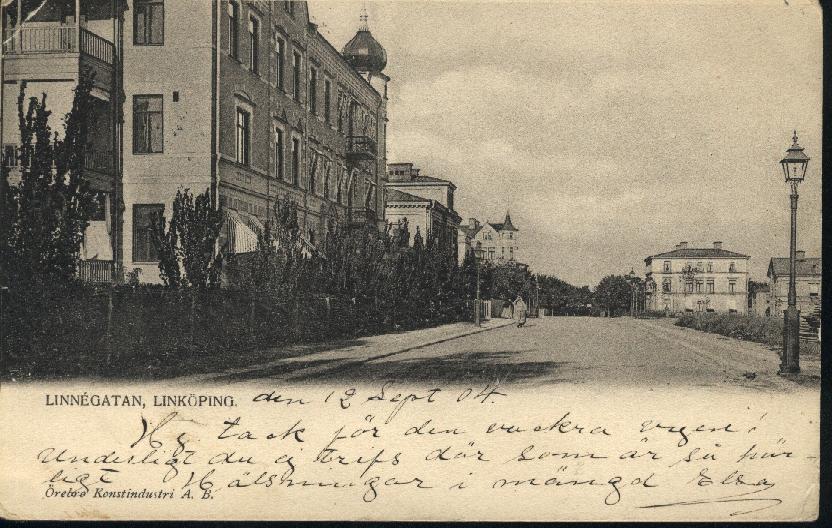 LINNÉGATAN, LINKÖPING. den 12 Sept 04.
Hg tack för den vackra vyen!
Underligt du ej trifs där som är så här-
ligt Hälsningar i mängd Elsa
Örebro Konstindustri A. B.